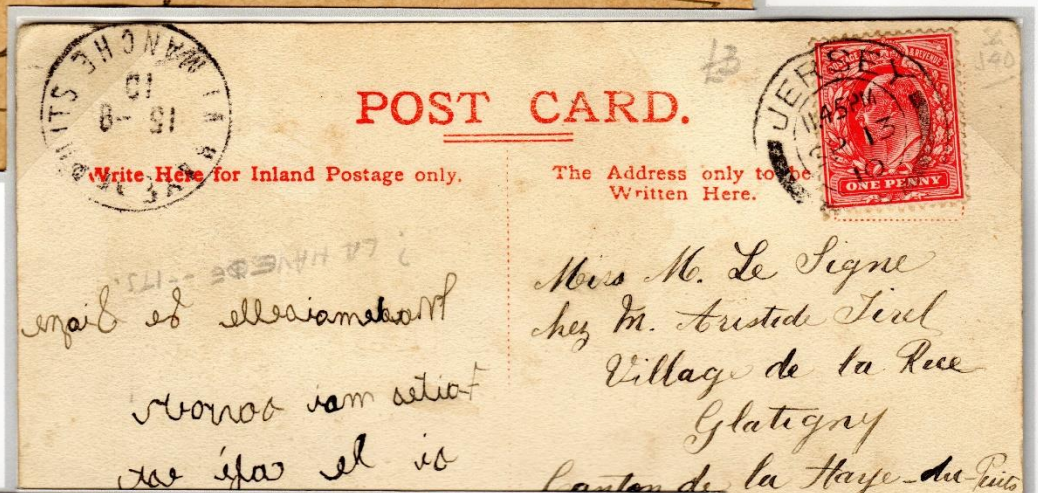 POST CARD.
LA HAYE DU PUITS MANCHE
15 -8
10
£3
JERSEY
11.45PM
13
10
POSTAGE & REVENUE
ONE PENNY
Write Here for Inland Postage only.
The Address only to be
Written Here.
? LA HAYE DE --ITS.
Mademoiselle Le Signe
Faites moi savoir
si le café est
Miss M. Le Signe
chez M. Aristide Tirel
Village de la Rue
Glatigny
Canton de la Haye-du-Puits